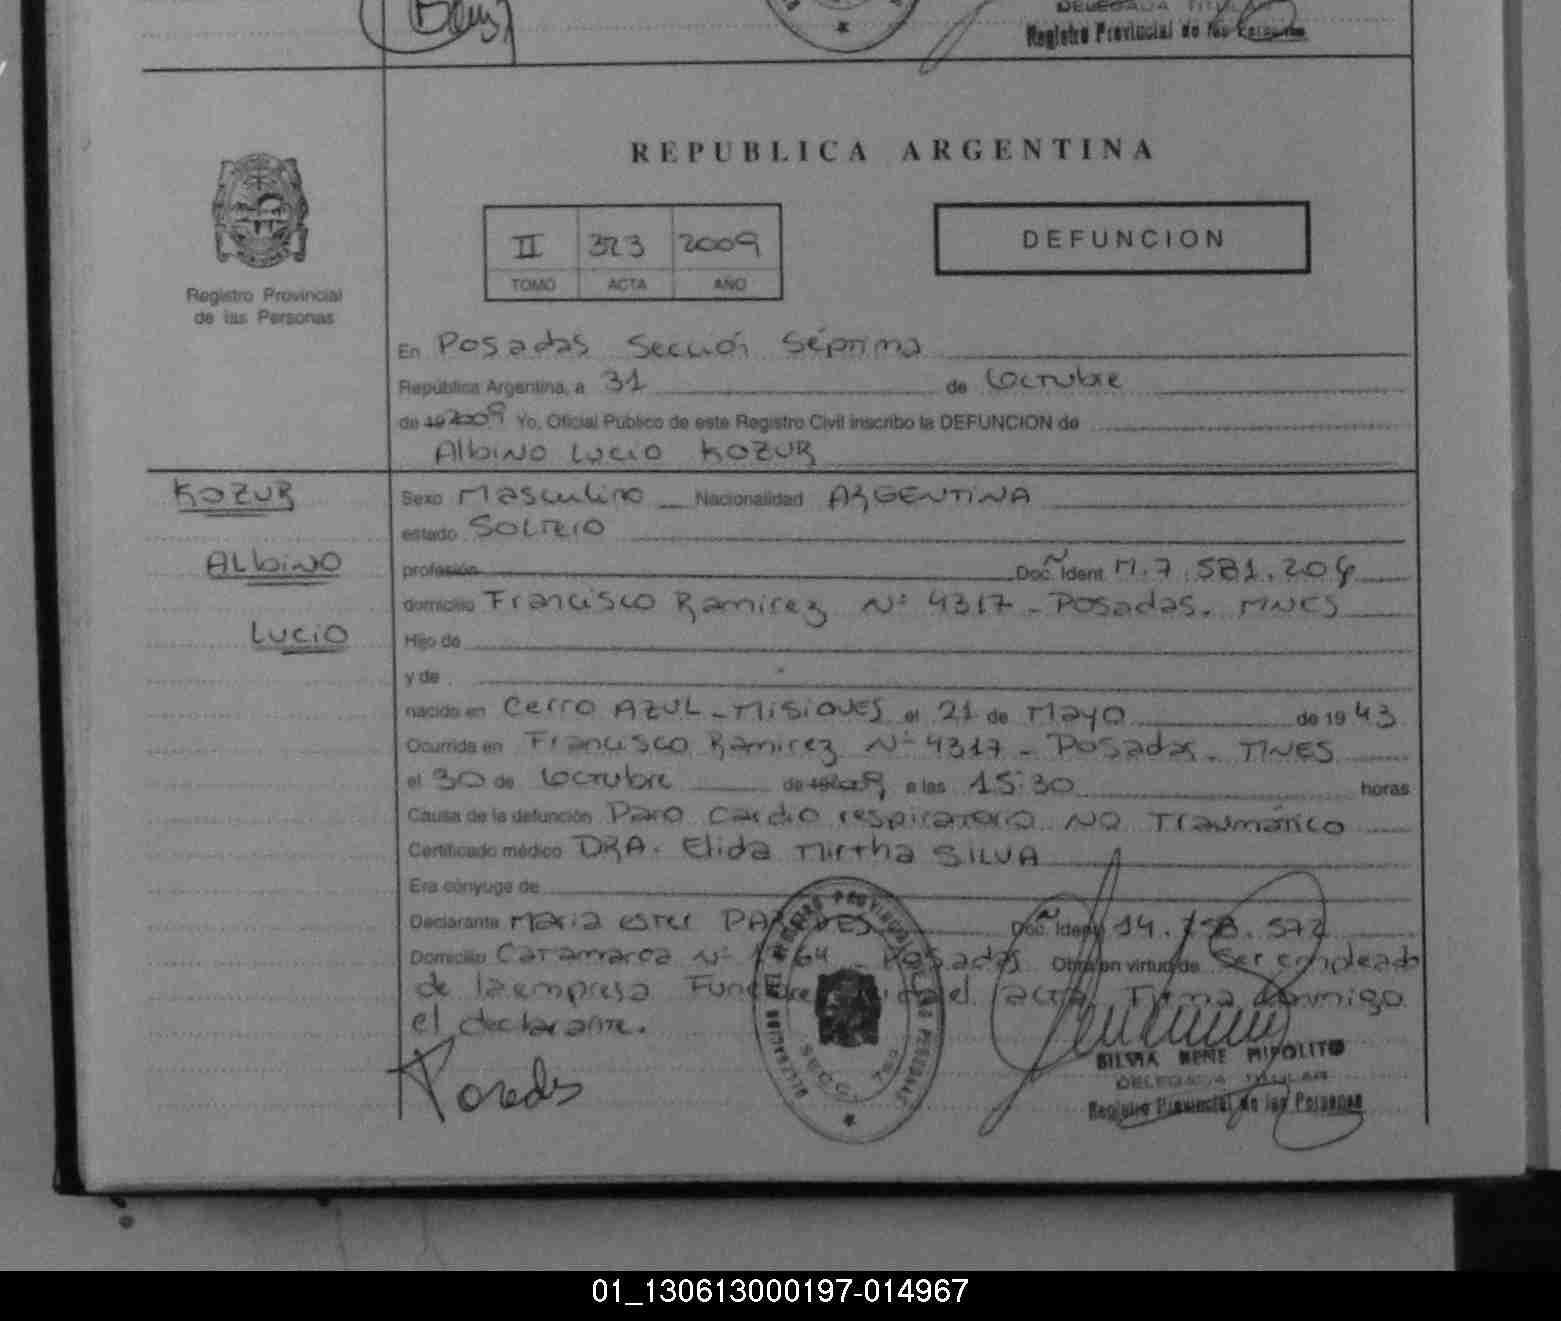 DELEGADA TITULAR
Registro Provincial de las Personas
REPUBLICA ARGENTINA
II 323 2009
TOMO ACTA AÑO
DEFUNCION
Registro Provincial
de las Personas
En Posadas Sección Séptima
República Argentina, a 31 de Octubre
de 19 2009 Yo, Oficial Público de este Registro Civil inscribo la DEFUNCION de
Albino Lucio KOZUR
KOZUR
ALbiNO
LUCiO
Sexo Masculino Nacionalidad ARGENTINA
estado SOLTERO
profesión Doc. Ident M.7.581.204
domicilio Francisco Ramirez Nº 4317 - Posadas. MNES
Hijo de
y de
nacido en Cerro AZUL - MISIONES el 21 de Mayo de 19 43
Ocurrida en Francisco Ramirez Nº 4317 - Posadas - MNES
el 30 de Octubre de 19 2009 a las 15:30 horas
Causa de la defunción Paro Cardio respiratorio NO Traumático
Certificado médico DRA. Elida Mirtha SILVA
Era cónyuge de
Declarante Maria ester PAREDES Doc. Ident 14.758.572
Domicilio Catamarca Nº 64 - Posadas Obra en virtud de Ser empleado
de la empresa Funebre el acta. Firma conmigo
el declarante.
Paredes
SILVIA RENE HIPOLITO
DELEGADA TITULAR
Registro Provincial de las Personas
01_130613000197-014967